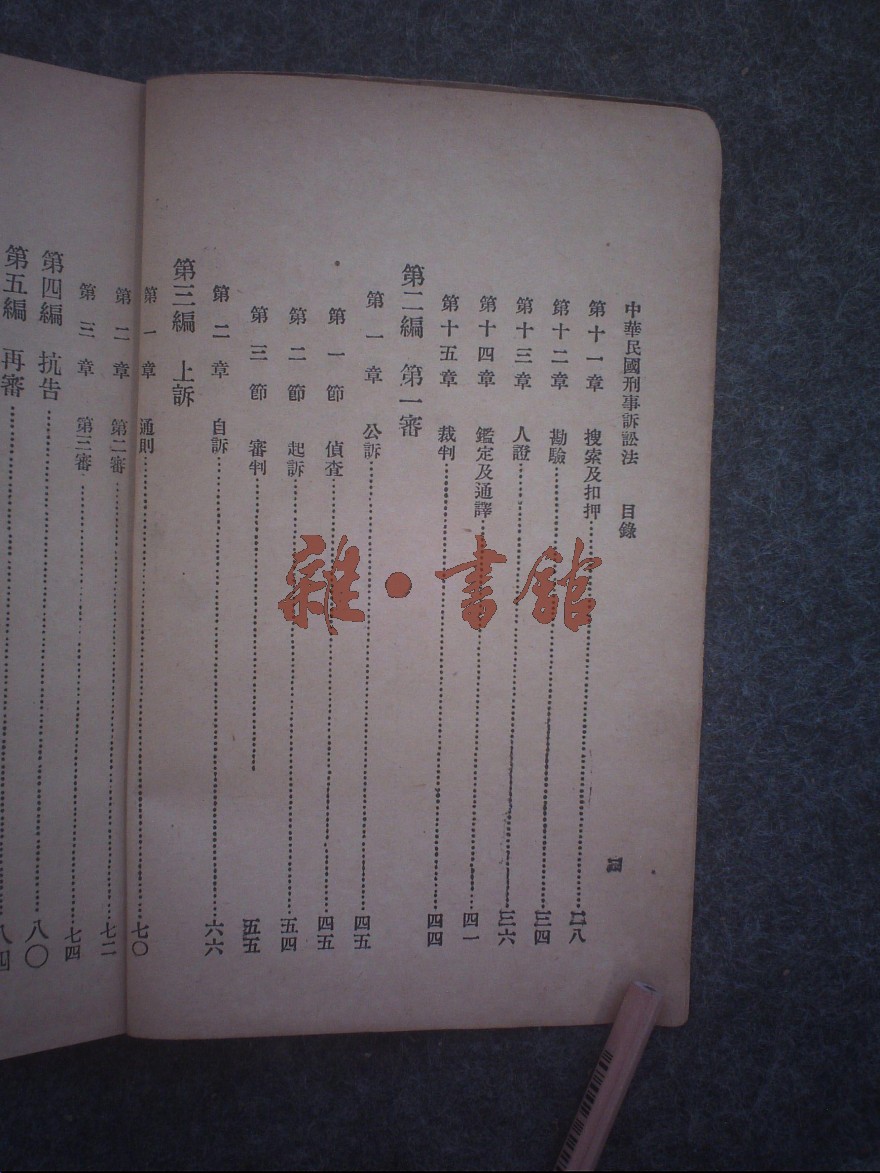 中華民國刑事訴訟法 目錄
第十一章 搜索及扣押……二八
第十二章 勘驗……三四
第十三章 人證……三六
第十四章 鑑定及通譯……四一
第十五章 裁判……四四
第二編 第一審
第一章 公訴……四五
第一節 偵查……四五
第二節 起訴……五四
第三節 審判……五五
第二章 自訴……六六
第三編 上訴
第一章 通則……七〇
第二章 第二審……七二
第三章 第三審……七四
第四編 抗告……八〇
第五編 再審……八四
雜·書館